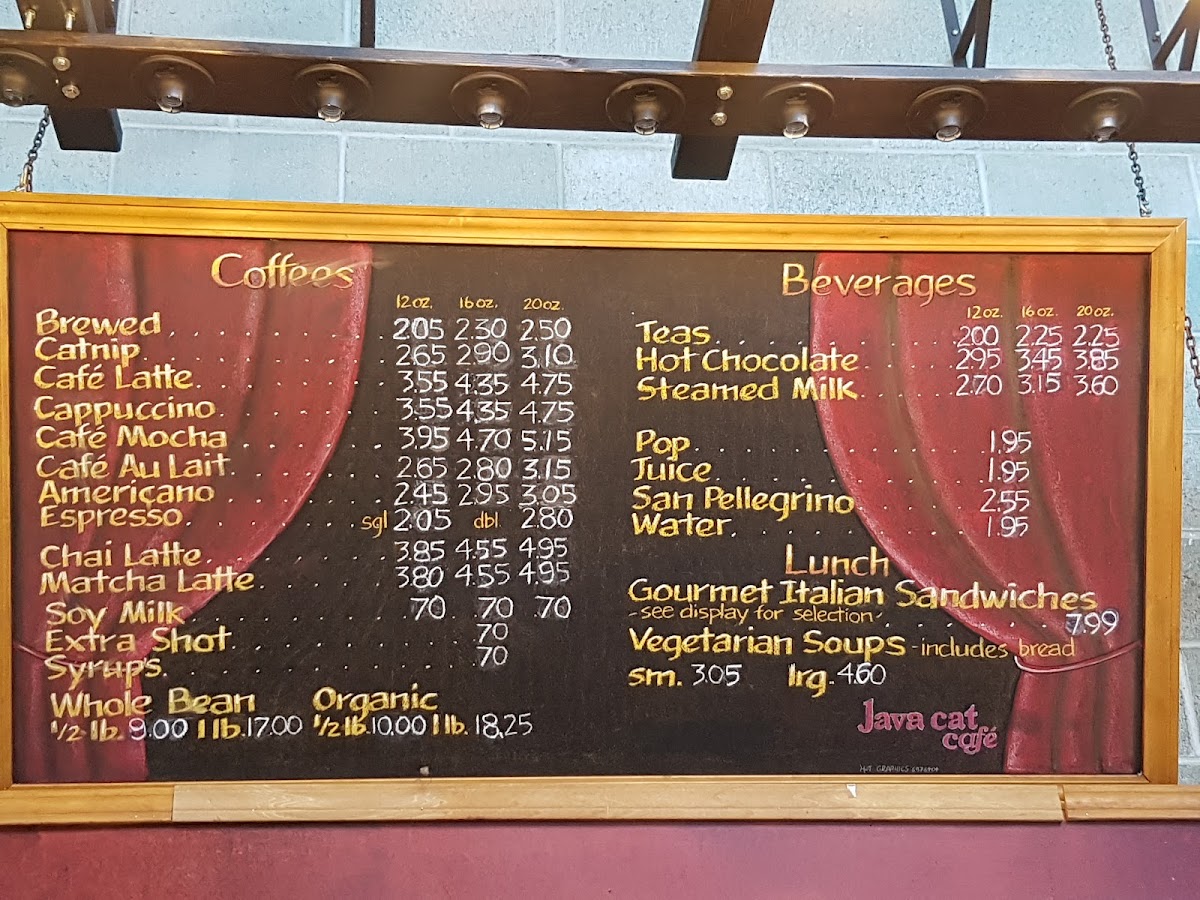 Coffees
12oz. 16oz. 20oz.
Brewed 2.05 2.30 2.50
Catnip 2.65 2.90 3.10
Café Latte 3.55 4.35 4.75
Cappuccino 3.55 4.35 4.75
Café Mocha 3.95 4.70 5.15
Café Au Lait 2.65 2.80 3.15
Americano 2.45 2.95 3.05
Espresso sgl 2.05 dbl 2.80
Chai Latte 3.85 4.55 4.95
Matcha Latte 3.80 4.55 4.95
Soy Milk .70 .70 .70
Extra Shot .70
Syrups .70
Whole Bean Organic
1/2 lb. 9.00 1 lb. 17.00 1/2 lb. 10.00 1 lb. 18.25
Beverages
12oz. 16oz. 20oz.
Teas 2.00 2.25 2.25
Hot Chocolate 2.95 3.45 3.85
Steamed Milk 2.70 3.15 3.60
Pop 1.95
Juice 1.95
San Pellegrino 2.55
Water 1.95
Lunch
Gourmet Italian Sandwiches
-see display for selection- 7.99
Vegetarian Soups -includes bread
sm. 3.05 lrg. 4.60
Java cat
café
HOT GRAPHICS